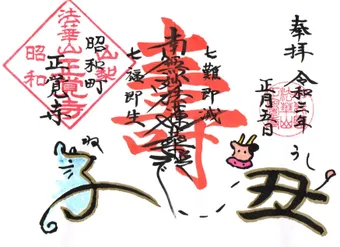 奉拝
令和三年
正月五日
七難即滅
七福即生
壽
昭和町
正覚寺
法華山
正覚寺
昭和
ね
子
うし
丑